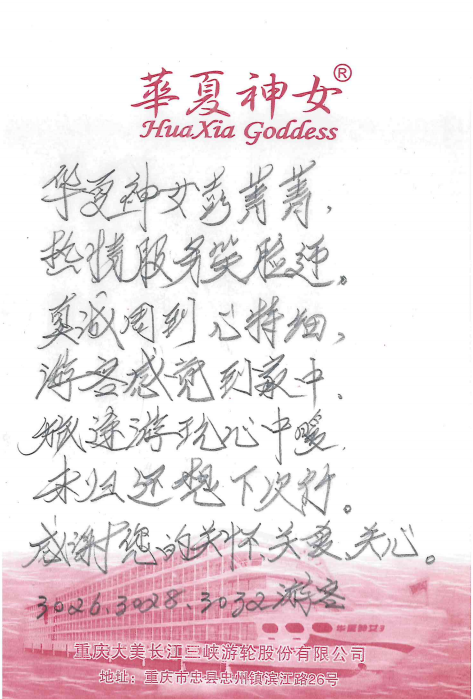 華夏神女®
HuaXia Goddess
华夏神女彭菁菁,
热情服务笑脸迎。
真诚周到心特细,
游客感觉到家中.
航途游玩心中暖.
未归还想下次行。
感谢您的关怀、关爱、关心。
3026.3028.3032游客
華夏神女
重庆大美长江三峡游轮股份有限公司
地址：重庆市忠县忠州镇滨江路26号